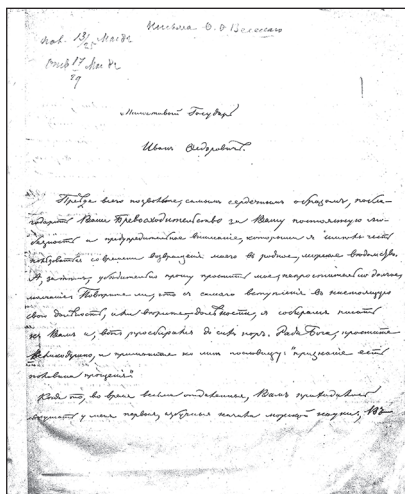 Письма Ѳ. Ѳ. Веселаго
пол. 13/25 Мая 82
Отв 17/29 Мая 82
Милостивый Государь
Иванъ Ѳедоровичъ.
Прежде всего позвольте, самымъ сердечнымъ образомъ, побла-
годарить Ваше Превосходительство за Вашу постоянную лю-
безность и предупредительное вниманіе, которыми я имѣю честь
пользоваться со времени возвращенія моего въ родное, морское вѣдомство.
А, затѣмъ, убѣдительно прошу простить мое, непростительно долгое,
молчаніе. Повѣрите ли, что съ самаго вступленія въ настоящую
свою должность, я собирался писать
къ Вамъ и, вотъ, прособирался до сихъ поръ. Ради Бога, простите
великодушно, и примѣните ко мнѣ пословицу: признаніе есть
половина прощенія.
Когда то, во время весьма отдаленное, Вамъ приходилось
слушать у меня первыя, азбучныя начала морской науки,